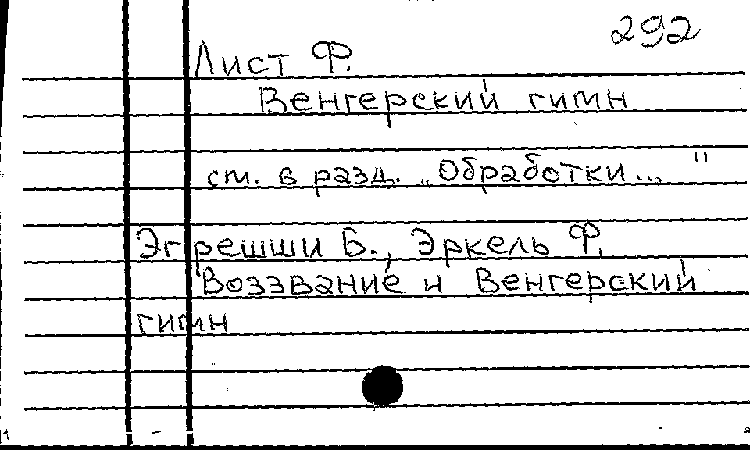 292
Лист Ф.
Венгерский гимн
ст. в разд. „Обработки... "
Эгрешши Б., Эркель Ф.
Воззвание и Венгерский
гимн